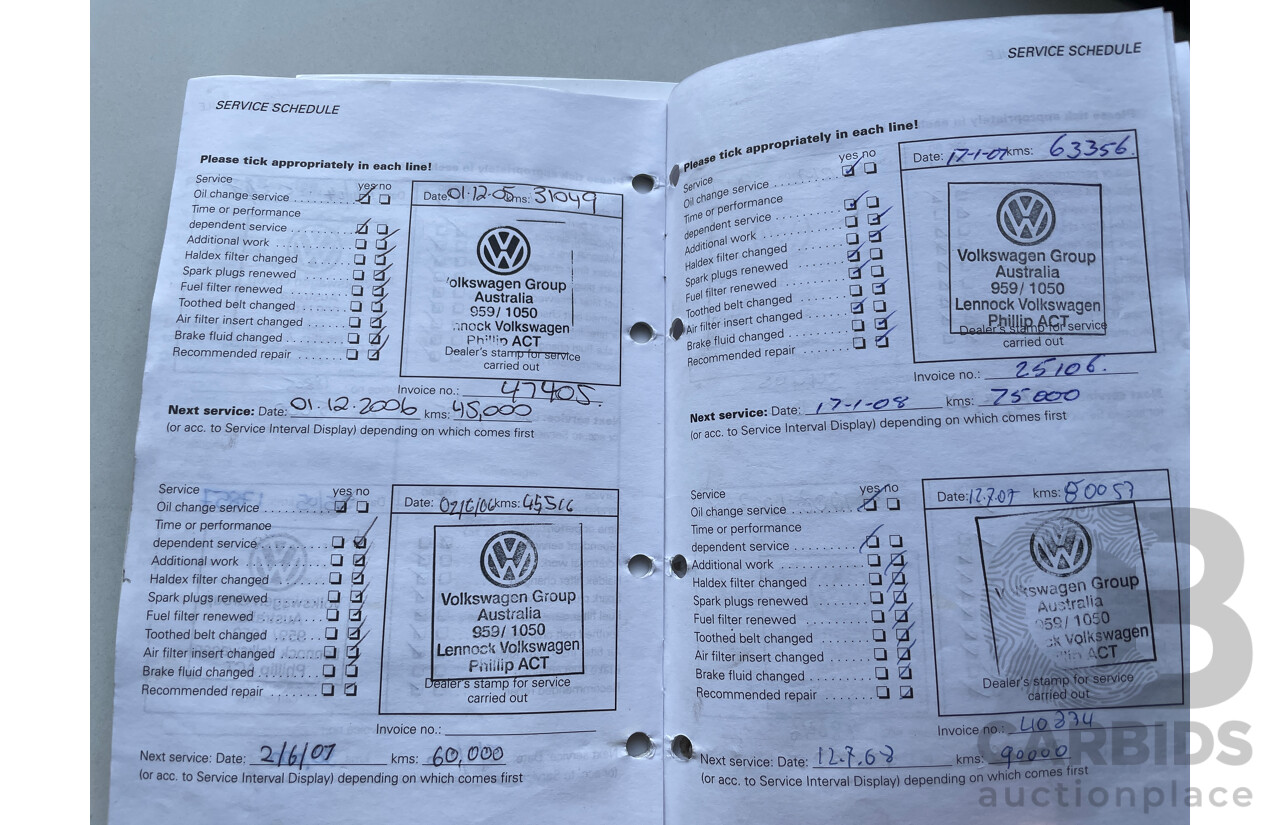 SERVICE SCHEDULE
Please tick appropriately in each line!
Service
yes no
Oil change service
Time or performance
dependent service
Additional work
Haldex filter changed
Spark plugs renewed
Fuel filter renewed
Toothed belt changed
Air filter insert changed
Brake fluid changed
Recommended repair
Date: 01.12.05 kms: 31049
Volkswagen Group
Australia
959/ 1050
Lennock Volkswagen
Phillip ACT
Dealer's stamp for service
carried out
Invoice no.: 47405.
Next service: Date: 01.12.2006 kms: 45,000
(or acc. to Service Interval Display) depending on which comes first
Service
yes no
Oil change service
Time or performance
dependent service
Additional work
Haldex filter changed
Spark plugs renewed
Fuel filter renewed
Toothed belt changed
Air filter insert changed
Brake fluid changed
Recommended repair
Date: 02/6/06 kms: 45516
Volkswagen Group
Australia
959/ 1050
Lennock Volkswagen
Phillip ACT
Dealer's stamp for service
carried out
Invoice no.:
Next service: Date: 2/6/07 kms: 60,000
(or acc. to Service Interval Display) depending on which comes first
SERVICE SCHEDULE
Please tick appropriately in each line!
Service
yes no
Oil change service
Time or performance
dependent service
Additional work
Haldex filter changed
Spark plugs renewed
Fuel filter renewed
Toothed belt changed
Air filter insert changed
Brake fluid changed
Recommended repair
Date: 17-1-07 kms: 63356.
Volkswagen Group
Australia
959/ 1050
Lennock Volkswagen
Phillip ACT
Dealer's stamp for service
carried out
Invoice no.: 25106.
Next service: Date: 17-1-08 kms: 75000
(or acc. to Service Interval Display) depending on which comes first
Service
yes no
Oil change service
Time or performance
dependent service
Additional work
Haldex filter changed
Spark plugs renewed
Fuel filter renewed
Toothed belt changed
Air filter insert changed
Brake fluid changed
Recommended repair
Date: 12.7.07 kms: 80057
Volkswagen Group
Australia
959/ 1050
Volkswagen
ACT
Dealer's stamp for service
carried out
Invoice no.: 40334
Next service: Date: 12.7.08 kms: 90000
(or acc. to Service Interval Display) depending on which comes first
CARBIDS
auctionplace